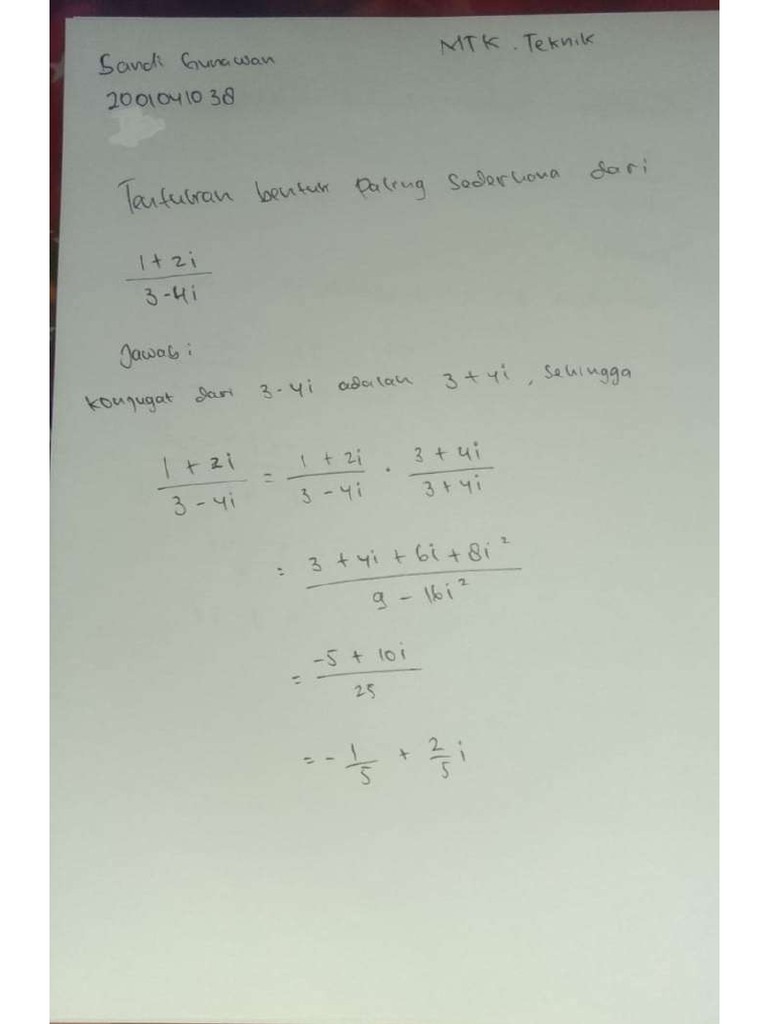 Sandi Gunawan
MTK . Teknik
2001041038
Tentukan bentuk paling sederhana dari
1 + 2i
3 - 4i
Jawab :
Konjugat dari 3 - 4i adalah 3 + 4i , sehingga
1 + 2i / 3 - 4i = 1 + 2i / 3 - 4i . 3 + 4i / 3 + 4i
= 3 + 4i + 6i + 8i² / 9 - 16i²
= -5 + 10i / 25
= - 1/5 + 2/5 i